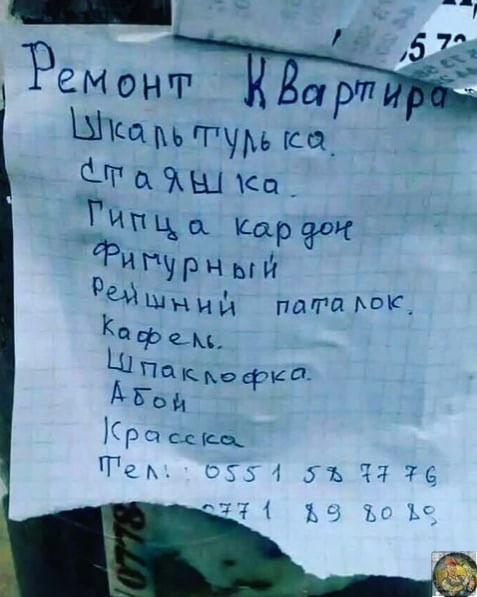 Ремонт Квартира
Шкальтулька.
стаяшка.
Гипца кардон
Фигурный
Рейшний паталок.
Кафель.
Шпаклофка.
Абой
Красска
Тел.: 0551 58 77 76
0771 89 80 89
0778